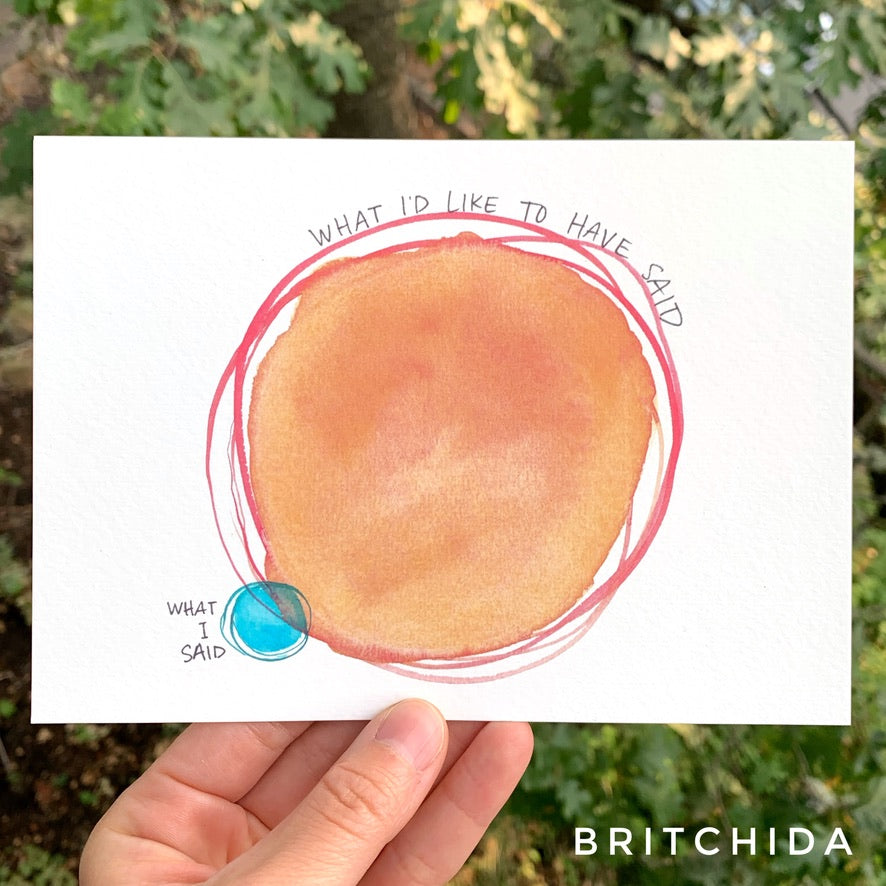 WHAT I'D LIKE TO HAVE SAID
WHAT
I
SAID
BRITCHIDA